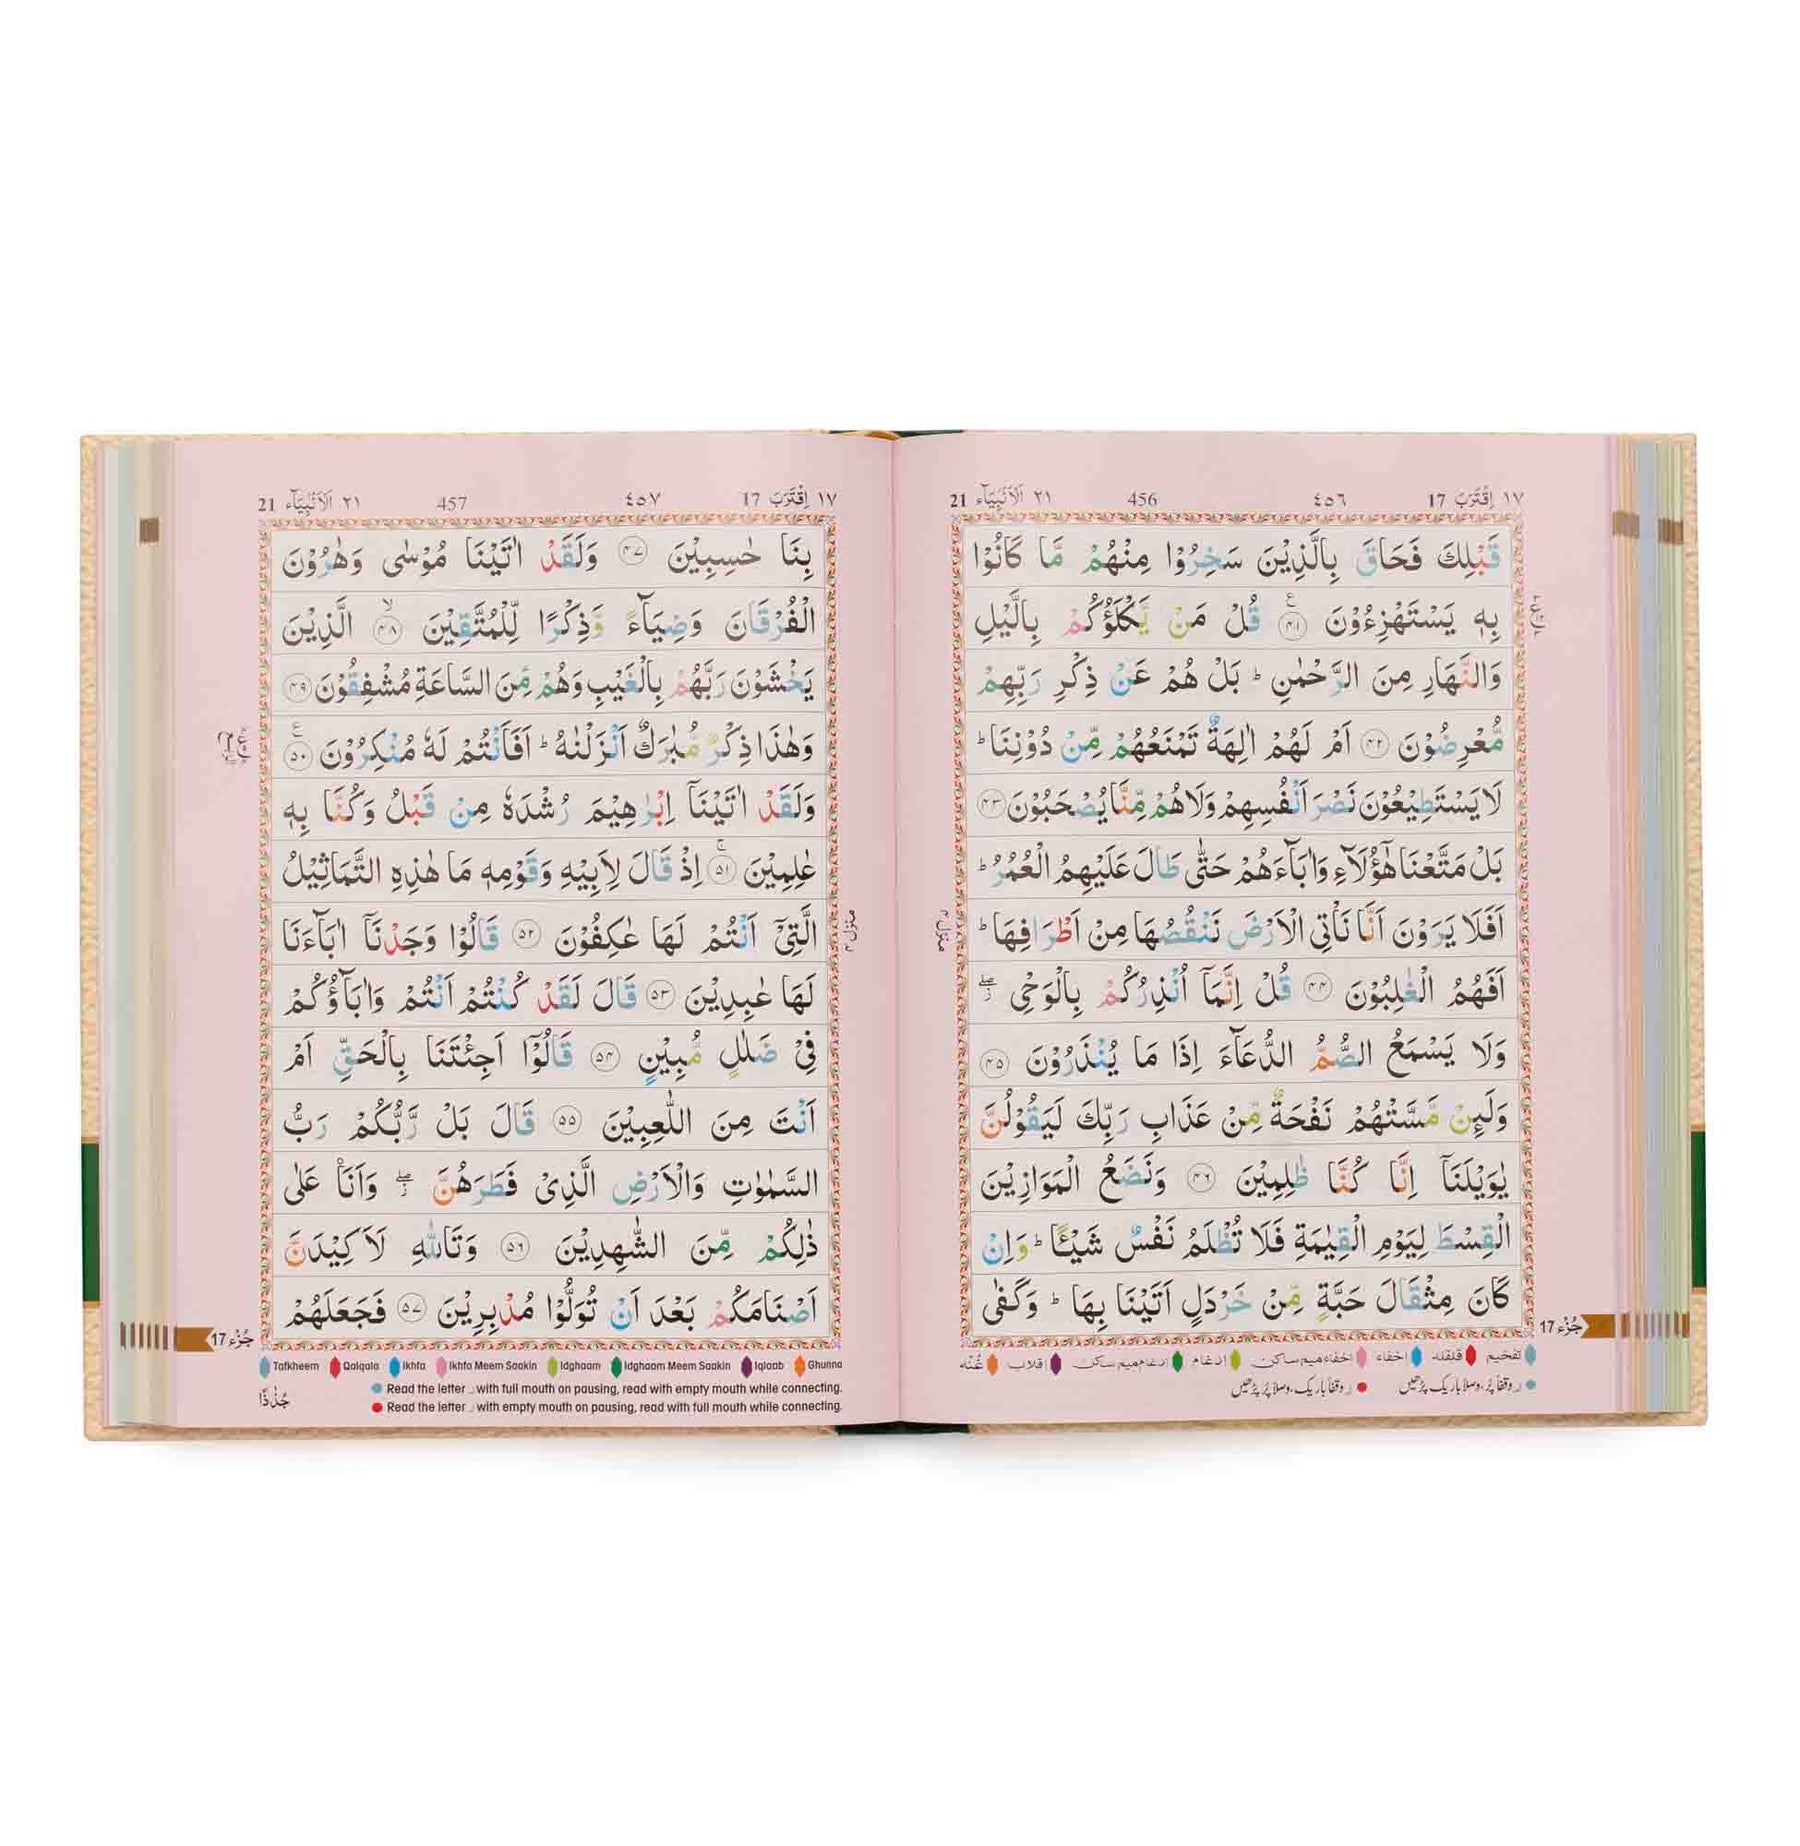 ١٧ اِقْتَرَبَ 17 ٤٥٦ 456 ٢١ اَلْاَنْبِيَآء 21
قَبْلِكَ فَحَاقَ بِالَّذِيْنَ سَخِرُوْا مِنْهُمْ مَّا كَانُوْا
بِهٖ يَسْتَهْزِءُوْنَ ﴿۴۱﴾ۧ قُلْ مَنْ يَّكْلَؤُكُمْ بِالَّيْلِ
وَالنَّهَارِ مِنَ الرَّحْمٰنِ ؕ بَلْ هُمْ عَنْ ذِكْرِ رَبِّهِمْ
مُّعْرِضُوْنَ ﴿۴۲﴾ اَمْ لَهُمْ اٰلِهَةٌ تَمْنَعُهُمْ مِّنْ دُوْنِنَا ؕ
لَا يَسْتَطِيْعُوْنَ نَصْرَ اَنْفُسِهِمْ وَلَا هُمْ مِّنَّا يُصْحَبُوْنَ ﴿۴۳﴾
بَلْ مَتَّعْنَا هٰٓؤُلَآءِ وَاٰبَآءَهُمْ حَتّٰى طَالَ عَلَيْهِمُ الْعُمُرُ ؕ
اَفَلَا يَرَوْنَ اَنَّا نَاْتِى الْاَرْضَ نَنْقُصُهَا مِنْ اَطْرَافِهَا ؕ
اَفَهُمُ الْغٰلِبُوْنَ ﴿۴۴﴾ قُلْ اِنَّمَآ اُنْذِرُكُمْ بِالْوَحْىِ ۖز
وَلَا يَسْمَعُ الصُّمُّ الدُّعَآءَ اِذَا مَا يُنْذَرُوْنَ ﴿۴۵﴾
وَلَئِنْ مَّسَّتْهُمْ نَفْحَةٌ مِّنْ عَذَابِ رَبِّكَ لَيَقُوْلُنَّ
يٰوَيْلَنَآ اِنَّا كُنَّا ظٰلِمِيْنَ ﴿۴۶﴾ وَنَضَعُ الْمَوَازِيْنَ
الْقِسْطَ لِيَوْمِ الْقِيٰمَةِ فَلَا تُظْلَمُ نَفْسٌ شَيْـًٔا ؕ وَاِنْ
كَانَ مِثْقَالَ حَبَّةٍ مِّنْ خَرْدَلٍ اَتَيْنَا بِهَا ؕ وَكَفٰى
منزل ۴
جُزْء 17
تفخیم قلقله اخفاء اخفاء میم ساکن ادغام ادغام میم ساکن اقلاب غُنّه
ر وقفاً پُر، وصلاً باریک پڑھیں ر وقفاً باریک، وصلاً پُر پڑھیں
١٧ اِقْتَرَبَ 17 ٤٥٧ 457 ٢١ اَلْاَنْبِيَآء 21
بِنَا حٰسِبِيْنَ ﴿۴۷﴾ وَلَقَدْ اٰتَيْنَا مُوْسٰى وَهٰرُوْنَ
الْفُرْقَانَ وَضِيَآءً وَّذِكْرًا لِّلْمُتَّقِيْنَ ﴿۴۸﴾ۙ الَّذِيْنَ
يَخْشَوْنَ رَبَّهُمْ بِالْغَيْبِ وَهُمْ مِّنَ السَّاعَةِ مُشْفِقُوْنَ ﴿۴۹﴾
وَهٰذَا ذِكْرٌ مُّبٰرَكٌ اَنْزَلْنٰهُ ؕ اَفَاَنْتُمْ لَهٗ مُنْكِرُوْنَ ﴿۵۰﴾ۧ
وَلَقَدْ اٰتَيْنَآ اِبْرٰهِيْمَ رُشْدَهٗ مِنْ قَبْلُ وَكُنَّا بِهٖ
عٰلِمِيْنَ ﴿۵۱﴾ۚ اِذْ قَالَ لِاَبِيْهِ وَقَوْمِهٖ مَا هٰذِهِ التَّمَاثِيْلُ
الَّتِىْٓ اَنْتُمْ لَهَا عٰكِفُوْنَ ﴿۵۲﴾ قَالُوْا وَجَدْنَآ اٰبَآءَنَا
لَهَا عٰبِدِيْنَ ﴿۵۳﴾ قَالَ لَقَدْ كُنْتُمْ اَنْتُمْ وَاٰبَآؤُكُمْ
فِىْ ضَلٰلٍ مُّبِيْنٍ ﴿۵۴﴾ قَالُوْٓا اَجِئْتَنَا بِالْحَقِّ اَمْ
اَنْتَ مِنَ اللّٰعِبِيْنَ ﴿۵۵﴾ قَالَ بَلْ رَّبُّكُمْ رَبُّ
السَّمٰوٰتِ وَالْاَرْضِ الَّذِىْ فَطَرَهُنَّ ۖز وَاَنَا۠ عَلٰى
ذٰلِكُمْ مِّنَ الشّٰهِدِيْنَ ﴿۵۶﴾ وَتَاللّٰهِ لَاَكِيْدَنَّ
اَصْنَامَكُمْ بَعْدَ اَنْ تُوَلُّوْا مُدْبِرِيْنَ ﴿۵۷﴾ فَجَعَلَهُمْ
منزل ۴
جُزْء 17
Tafkheem Qalqala Ikhfa Ikhfa Meem Saakin Idghaam Idghaam Meem Saakin Iqlaab Ghunna
Read the letter ر with full mouth on pausing, read with empty mouth while connecting.
Read the letter ر with empty mouth on pausing, read with full mouth while connecting.
جُذٰذًا